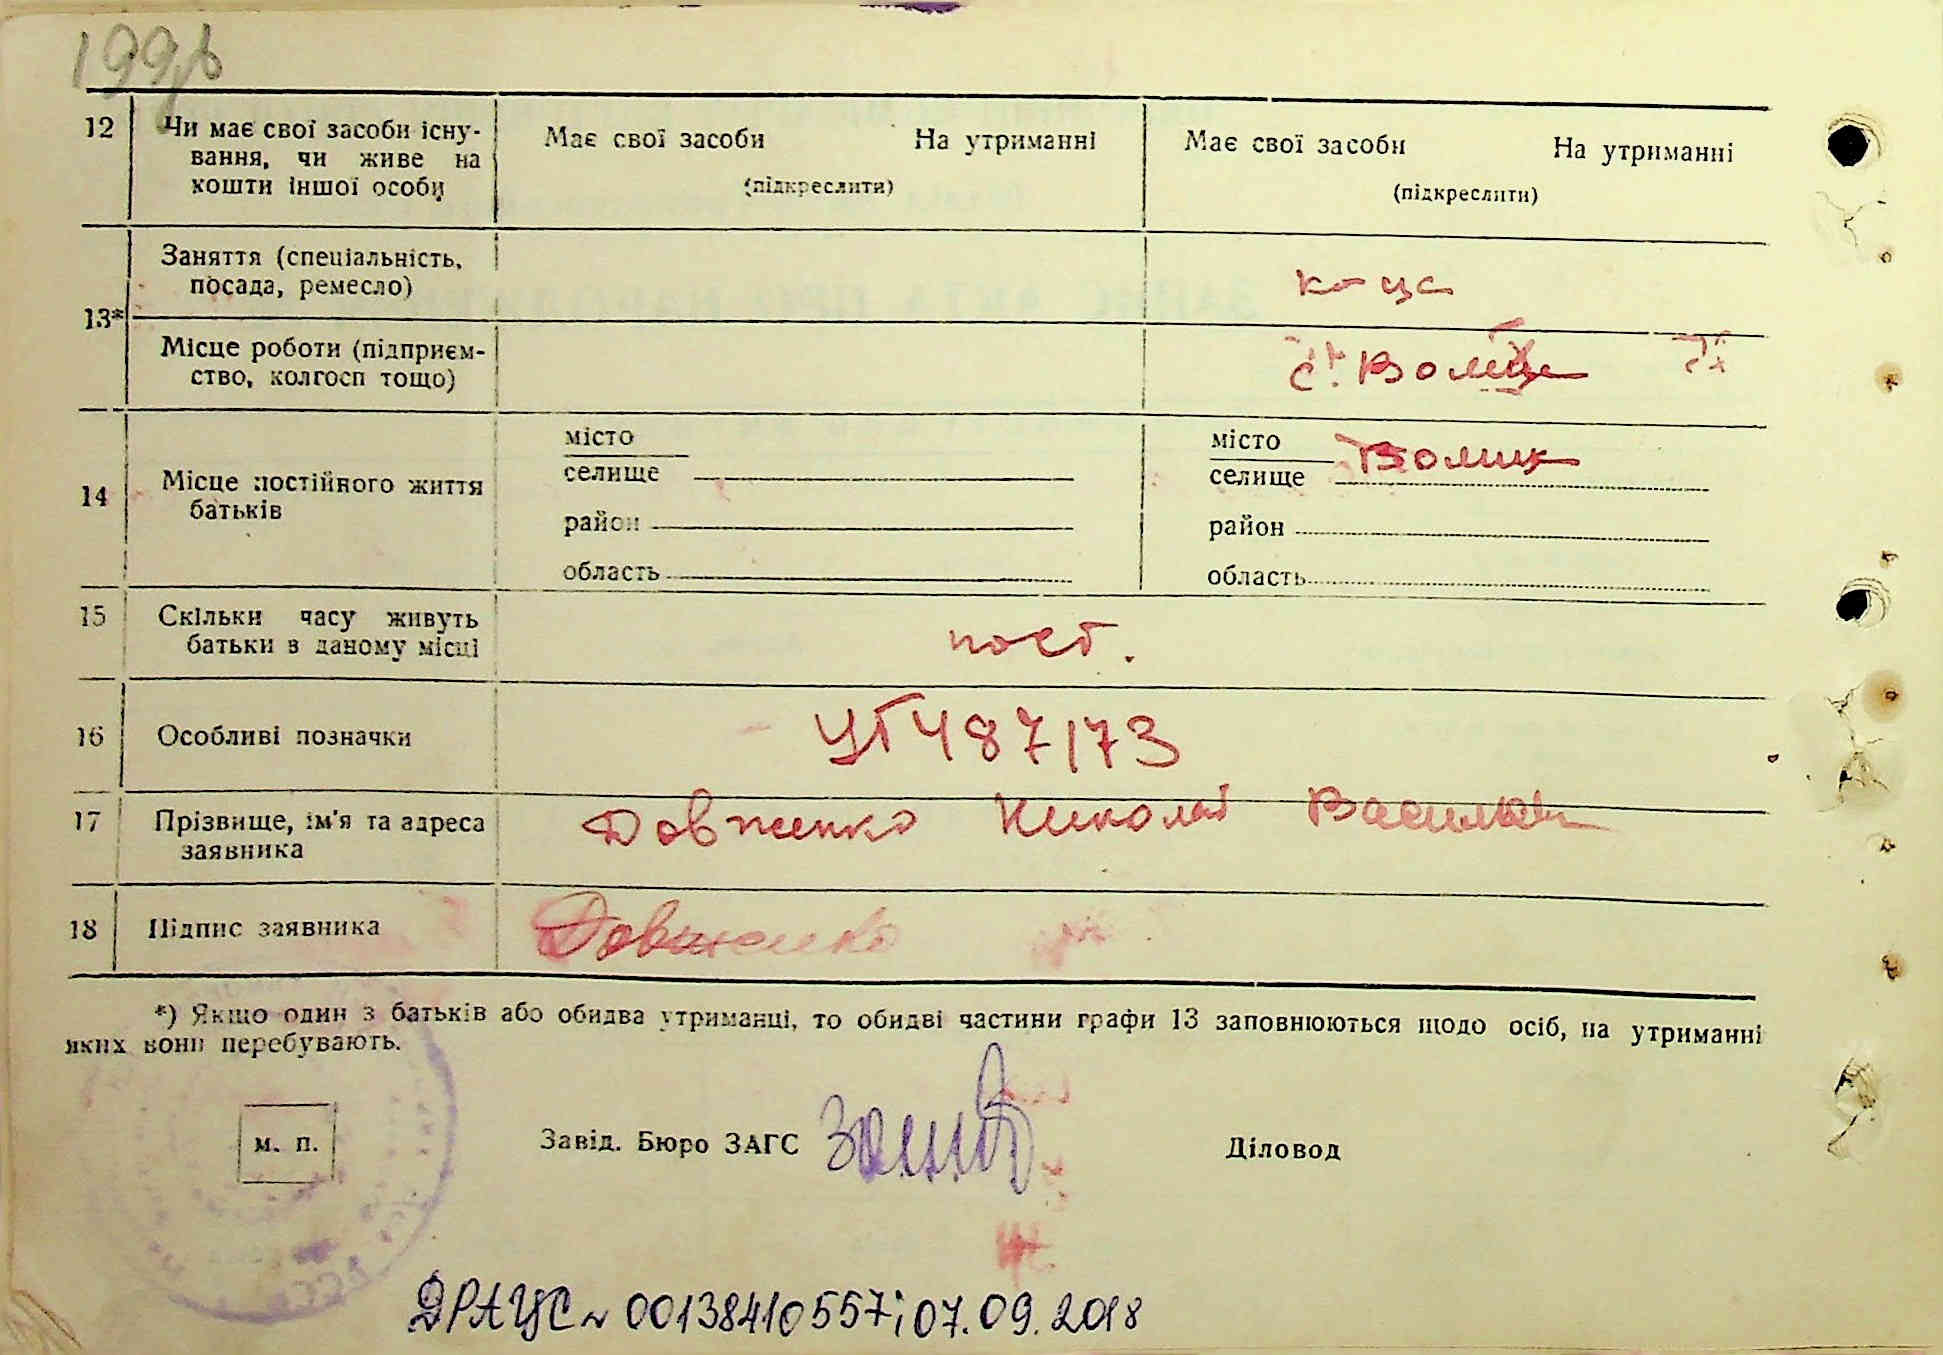 12
Чи має свої засоби існу-
вання, чи живе на
кошти іншої особи
Має свої засоби На утриманні
(підкреслити)
Має свої засоби На утриманні
(підкреслити)
13*
Заняття (спеціальність,
посада, ремесло)
Місце роботи (підприєм-
ство, колгосп тощо)
14
Місце постійного життя
батьків
місто
селище
район
область
місто
селище
район
область
15
Скільки часу живуть
батьки в даному місці
пост.
16
Особливі позначки
УГ487173
17
Прізвище, ім'я та адреса
заявника
Довженко Николай
18
Підпис заявника
Довженко
*) Якщо один з батьків або обидва утриманці, то обидві частини графи 13 заповнюються щодо осіб, на утриманні
яких вони перебувають.
м. п.
Завід. Бюро ЗАГС
Діловод
ДРАЦС 00138410557; 07.09.2018